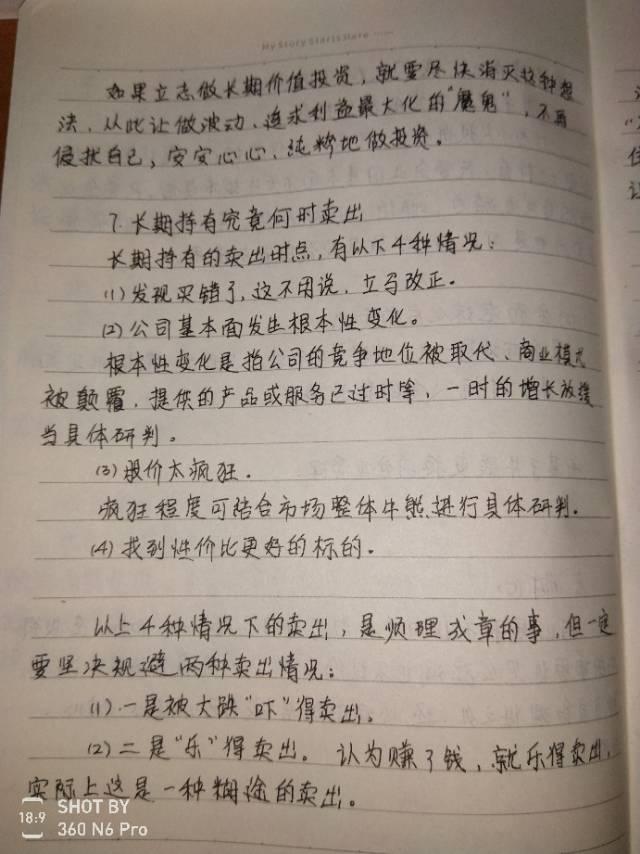 My Story Starts Here ······
如果立志做长期价值投资，就要尽快消灭这种想
法，从此让做波动、追求利益最大化的“魔鬼”，不再
侵扰自己，安安心心、纯粹地做投资。
7. 长期持有究竟何时卖出
长期持有的卖出时点，有以下4种情况：
(1) 发现买错了，这不用说，立马改正。
(2) 公司基本面发生根本性变化。
根本性变化是指公司的竞争地位被取代、商业模式
被颠覆，提供的产品或服务已过时等，一时的增长放缓
当具体研判。
(3) 股价太疯狂。
疯狂程度可结合市场整体牛熊进行具体研判。
(4) 找到性价比更好的标的。
以上4种情况下的卖出，是顺理成章的事，但一定
要坚决规避两种卖出情况：
(1) 一是被大跌“吓”得卖出。
(2) 二是“乐”得卖出。认为赚了钱，就乐得卖出，
实际上这是一种糊涂的卖出。
18:9
SHOT BY
360 N6 Pro